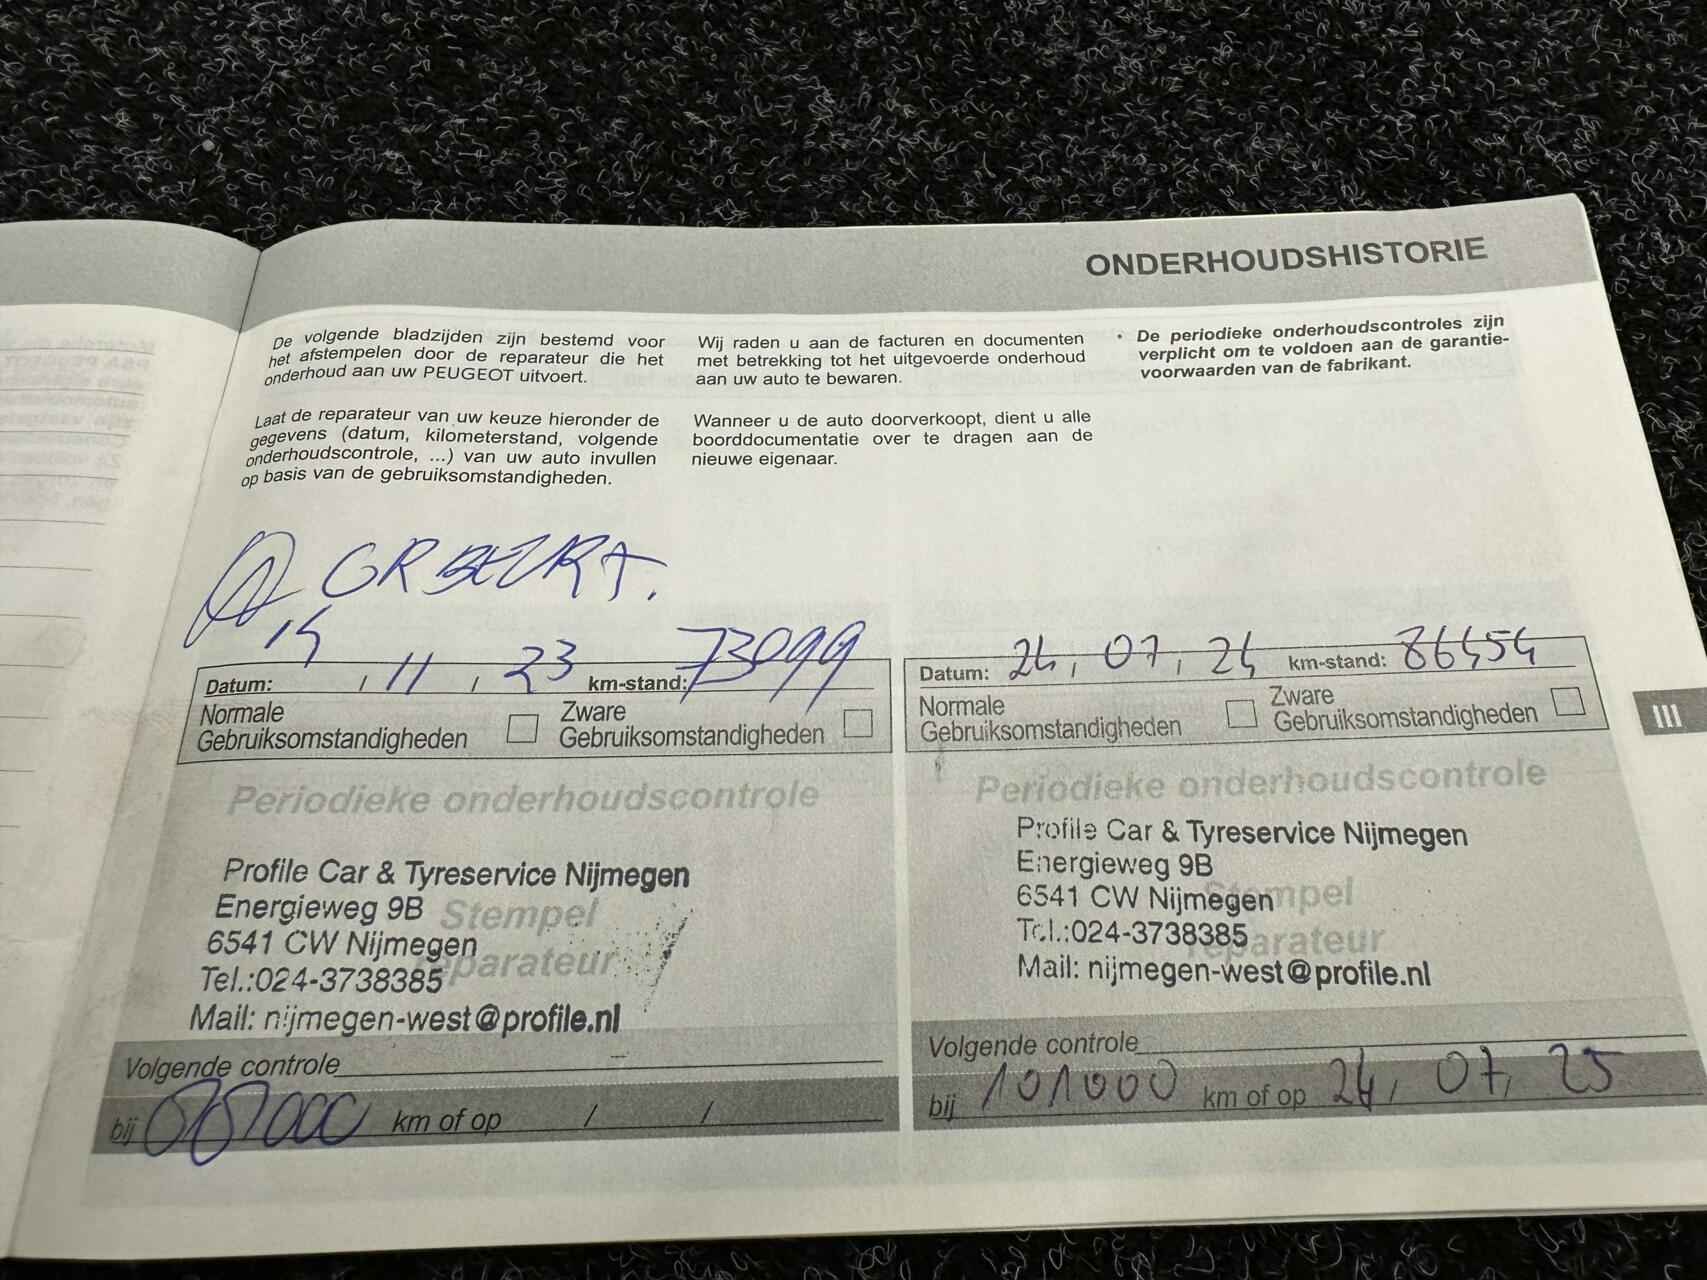 ONDERHOUDSHISTORIE
De volgende bladzijden zijn bestemd voor
het afstempelen door de reparateur die het
onderhoud aan uw PEUGEOT uitvoert.
Laat de reparateur van uw keuze hieronder de
gegevens (datum, kilometerstand, volgende
onderhoudscontrole, ...) van uw auto invullen
op basis van de gebruiksomstandigheden.
Wij raden u aan de facturen en documenten
met betrekking tot het uitgevoerde onderhoud
aan uw auto te bewaren.
Wanneer u de auto doorverkoopt, dient u alle
boorddocumentatie over te dragen aan de
nieuwe eigenaar.
• De periodieke onderhoudscontroles zijn
verplicht om te voldoen aan de garantie-
voorwaarden van de fabrikant.
GR BEURT.
Datum: / 11 / 23 km-stand: 73099
Normale
Gebruiksomstandigheden
Zware
Gebruiksomstandigheden
Periodieke onderhoudscontrole
Profile Car & Tyreservice Nijmegen
Energieweg 9B
Stempel
6541 CW Nijmegen
reparateur
Tel.:024-3738385
Mail: nijmegen-west@profile.nl
Volgende controle
bij 88000 km of op / /
Datum: 24 / 07 / 24 km-stand: 86454
Normale
Gebruiksomstandigheden
Zware
Gebruiksomstandigheden
Periodieke onderhoudscontrole
Profile Car & Tyreservice Nijmegen
Energieweg 9B
Stempel
6541 CW Nijmegen
Tel.:024-3738385
reparateur
Mail: nijmegen-west@profile.nl
Volgende controle
bij 101000 km of op 24 / 07 / 25
III